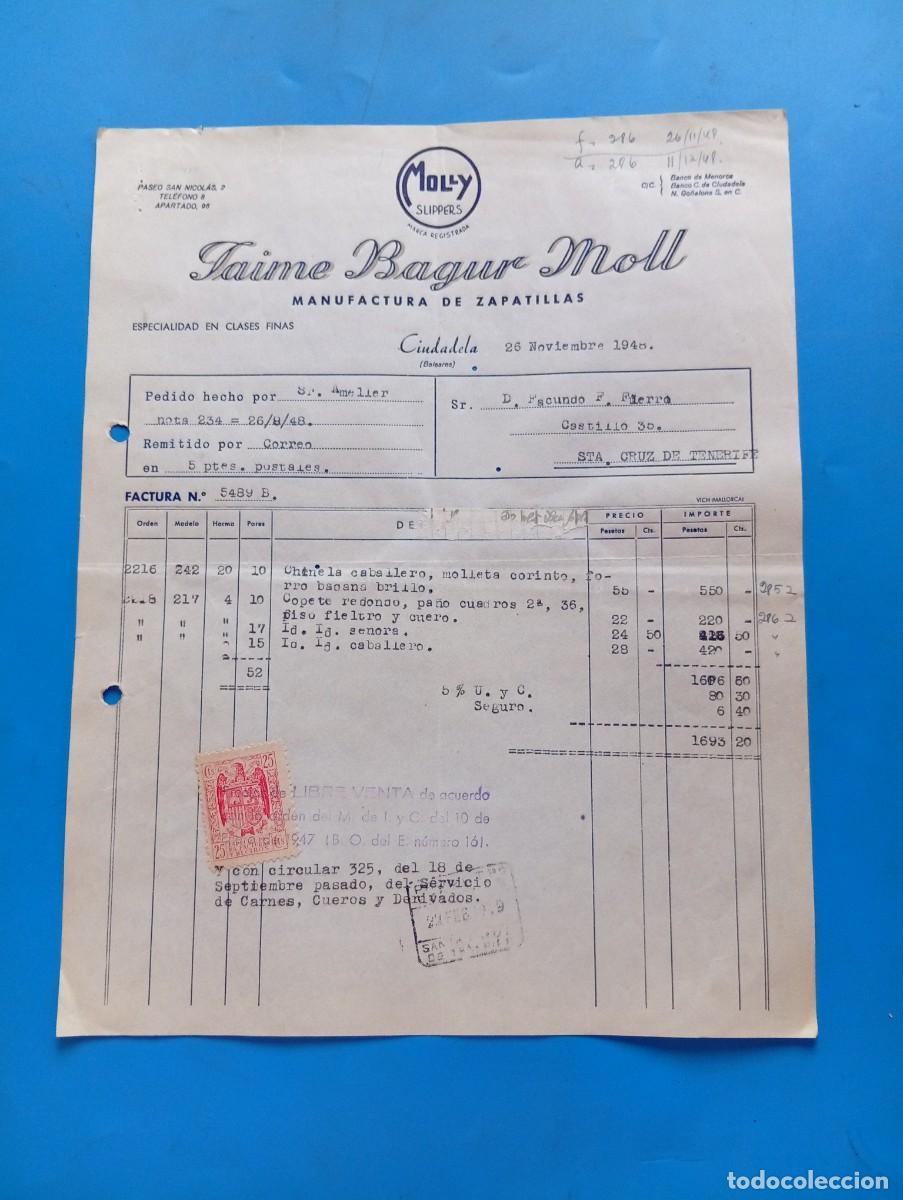 f. 296 26/11/48.
a. 296 11/12/48.
MOLLY
SLIPPERS
MARCA REGISTRADA
PASEO SAN NICOLÁS, 2
TELÉFONO 8
APARTADO, 96
C/C. Banco de Menorca
Banco C. de Ciudadela
N. Goñalons S. en C.
Jaime Bagur Moll
MANUFACTURA DE ZAPATILLAS
ESPECIALIDAD EN CLASES FINAS
Ciudadela 26 Noviembre 1948.
(Baleares)
Pedido hecho por Sr. Amelier
nota 234 = 26/8/48.
Remitido por Correo
en 5 ptes. postales.
Sr. D. Facundo F. Fierro
Castillo 36.
STA. CRUZ DE TENERIFE
FACTURA N.º 5489 B.
VICH (MALLORCA)
Orden Modelo Horma Pares DE PRECIO IMPORTE
Pesetas Cts. Pesetas Cts.
2216 242 20 10 Chinela caballero, molleta corinto, fo-
rro badana brillo. 55 - 550 - 2952
2218 217 4 10 Copete redondo, paño cuadros 2ª, 36,
piso fieltro y cuero. 22 - 220 - 2962
" " " 17 Id. Id. señora. 24 50 416 50 "
" " " 15 Id. Id. caballero. 28 - 420 - "
52 1606 50
5 % U. y C. 80 30
Seguro. 6 40
1693 20
25 Cts 25
25 25
LIBRE VENTA de acuerdo
orden del M. de I. y C. del 10 de
1947 (B. O. del E. número 16).
y con circular 325, del 18 de
Septiembre pasado, del Servicio
de Carnes, Cueros y Derivados.
FEB
SANTA
DE TENERIFE
todocoleccion